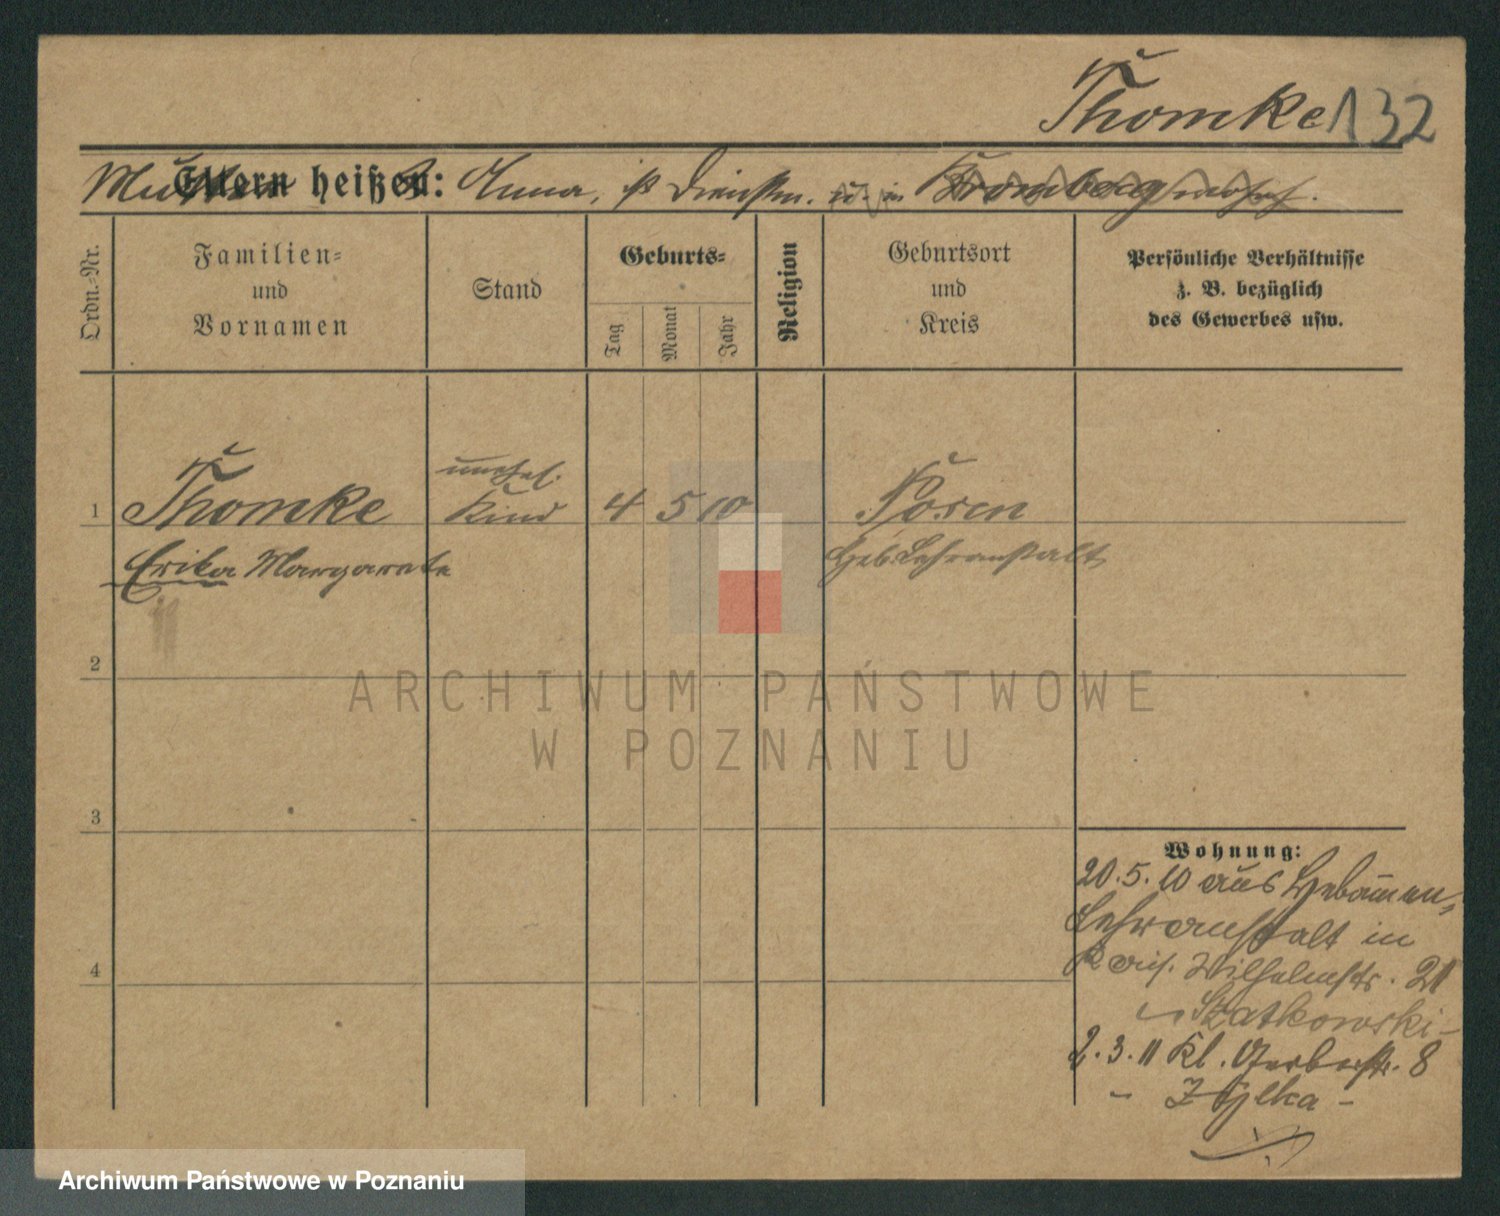 Thomke 132
Mutter heißt: Anna, ist Dienstm. u. in Bromberg wohnh.
Ordn.-Nr.
Familien-
und
Vornamen
Stand
Geburts-
Tag
Monat
Jahr
Religion
Geburtsort
und
Kreis
Persönliche Verhältnisse
z. B. bezüglich
des Gewerbes usw.
unehel.
1 Thomke Kind 4 5 10 Posen
Erika Margarete Heb. Lehranstalt
2
ARCHIWUM PAŃSTWOWE
W POZNANIU
3
Wohnung:
20.5.10 aus Hebammen-
Lehranstalt in
Wilhelmstr. 21
4
Szatkowski -
2.3.11 Kl. Gerberstr. 8
- Zylka -
Archiwum Państwowe w Poznaniu